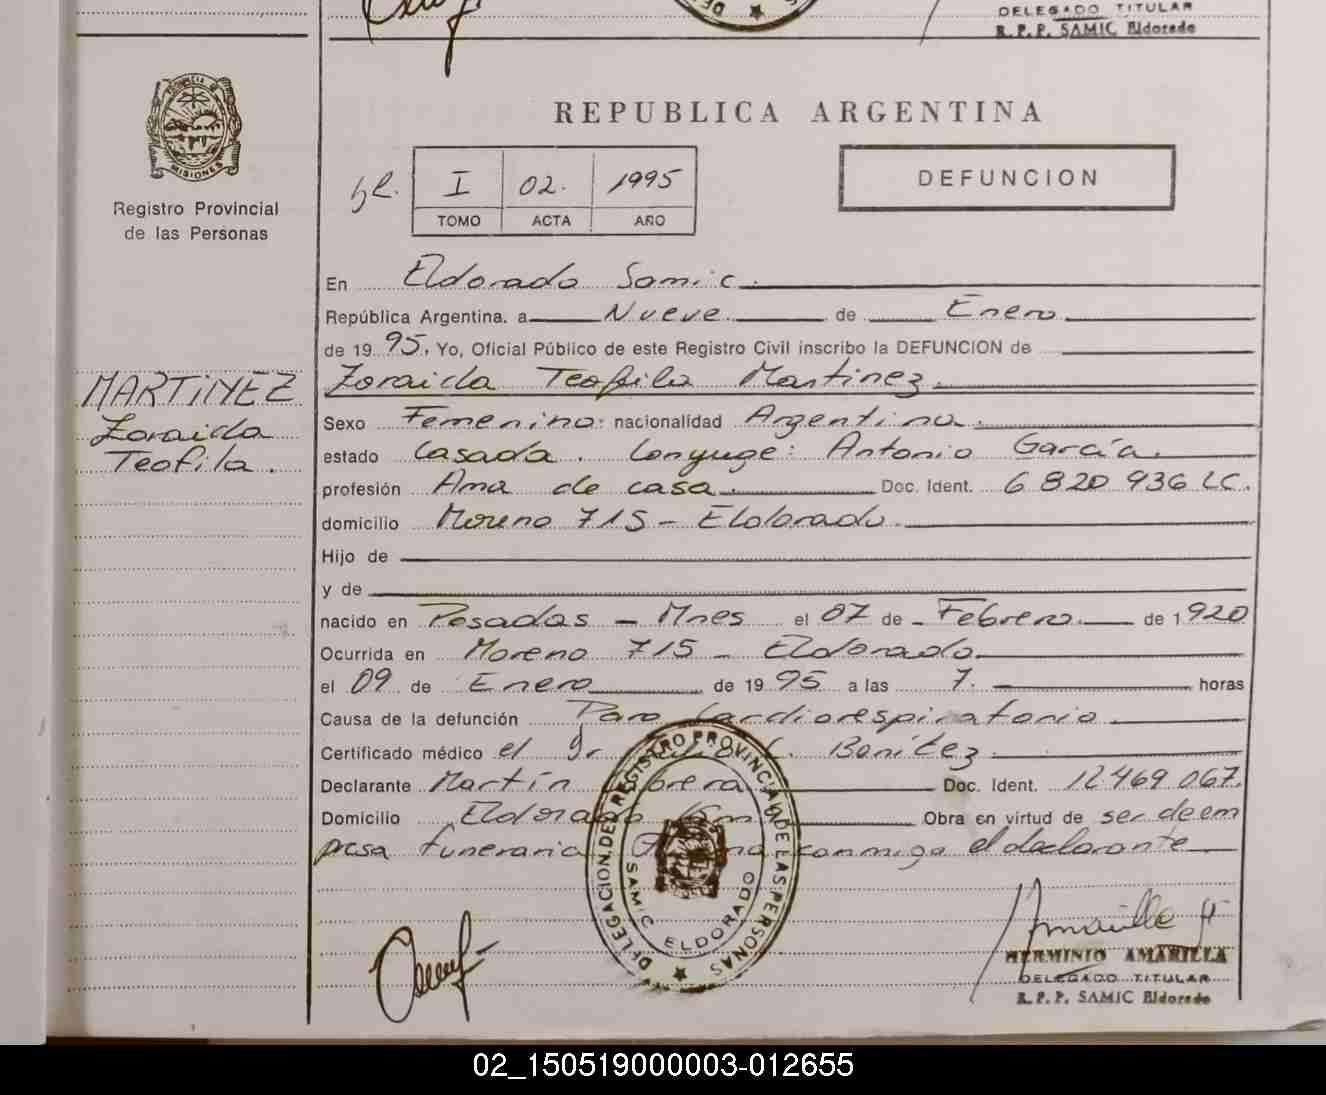 DELEGADO TITULAR
R.P.P. SAMIC Eldorado
PROVINCIA DE
MISIONES
Registro Provincial
de las Personas
REPUBLICA ARGENTINA
I 02. 1995
TOMO ACTA AÑO
DEFUNCION
En Eldorado Samic.
República Argentina. a Nueve de Enero
de 1995. Yo, Oficial Público de este Registro Civil inscribo la DEFUNCION de
Zoraida Teofila Martinez
MARTINEZ
Zoraida
Teofila.
Sexo Femenino: nacionalidad Argentina.
estado Casada. Conyuge: Antonio García.
profesión Ama de casa. Doc. Ident. 6 820 936 LC.
domicilio Moreno 715 - Eldorado.
Hijo de
y de
nacido en Posadas - Mnes el 07 de Febrero. de 1920
Ocurrida en Moreno 715 - Eldorado.
el 09 de Enero de 1995 a las 7. horas
Causa de la defunción Paro Cardiorespiratorio
Certificado médico el Dr. Benítez
Declarante Martín Doc. Ident. 12469067.
Domicilio Eldorado Obra en virtud de ser de em
presa funeraria conmigo el declarante
DELEGACION DEL REGISTRO PROVINCIAL DE LAS PERSONAS
SAMIC ELDORADO
Amarilla H
HERMINIO AMARILLA
DELEGADO TITULAR
R.P.P. SAMIC Eldorado
02_150519000003-012655